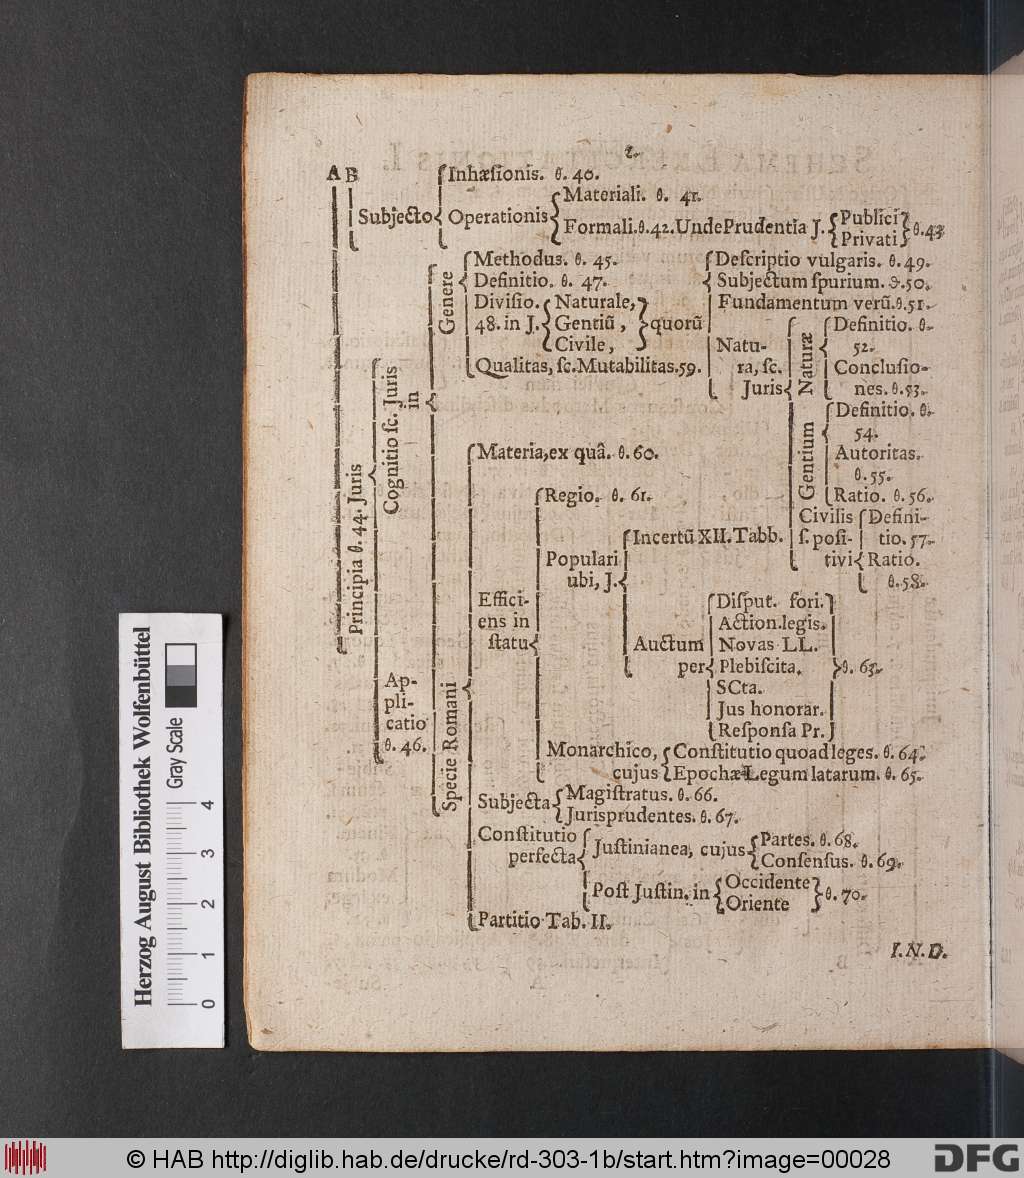 2.
A B Inhæſionis. θ. 40.
Materiali. θ. 41.
Subjecto Operationis
Formali. θ. 42. Unde Prudentia J. Publici
Privati θ. 43.
Genere Methodus. θ. 45.
Definitio. θ. 47.
Diviſio. Naturale,
48. in J. Gentiũ, quorũ
Civile,
Qualitas, ſc. Mutabilitas. 59.
Deſcriptio vulgaris. θ. 49.
Subjectum ſpurium. θ. 50.
Fundamentum verũ. θ. 51.
Natu-
ra, ſc.
Juris
Naturæ
Definitio. θ.
52.
Concluſio-
nes. θ. 53.
Gentium
Definitio. θ.
54.
Autoritas.
θ. 55.
Ratio. θ. 56.
Civilis Defini-
ſ. poſi- tio. 57.
tivi Ratio.
θ. 58.
Principia θ. 44. Juris
Cognitio ſc. Juris
in
Ap-
pli-
catio
θ. 46.
Specie Romani
Materia, ex quâ. θ. 60.
Effici-
ens in
ſtatu
Regio. θ. 61.
Populari
ubi, J.
Incertũ XII. Tabb.
Auctum
per
Diſput. fori.
Action. legis.
Novas LL.
Plebiſcita. θ. 63.
SCta.
Jus honorar.
Reſponſa Pr.
Monarchico, Conſtitutio quoad leges. θ. 64.
cujus Epochæ Legum latarum. θ. 65.
Subjecta Magiſtratus. θ. 66.
Jurisprudentes. θ. 67.
Conſtitutio
perfecta
Juſtinianea, cujus Partes. θ. 68.
Conſenſus. θ. 69.
Poſt Juſtin. in Occidente
Oriente θ. 70.
Partitio Tab. II.
I. N. D.
Herzog August Bibliothek Wolfenbüttel
Gray Scale
0 1 2 3 4
© HAB http://diglib.hab.de/drucke/rd-303-1b/start.htm?image=00028
DFG